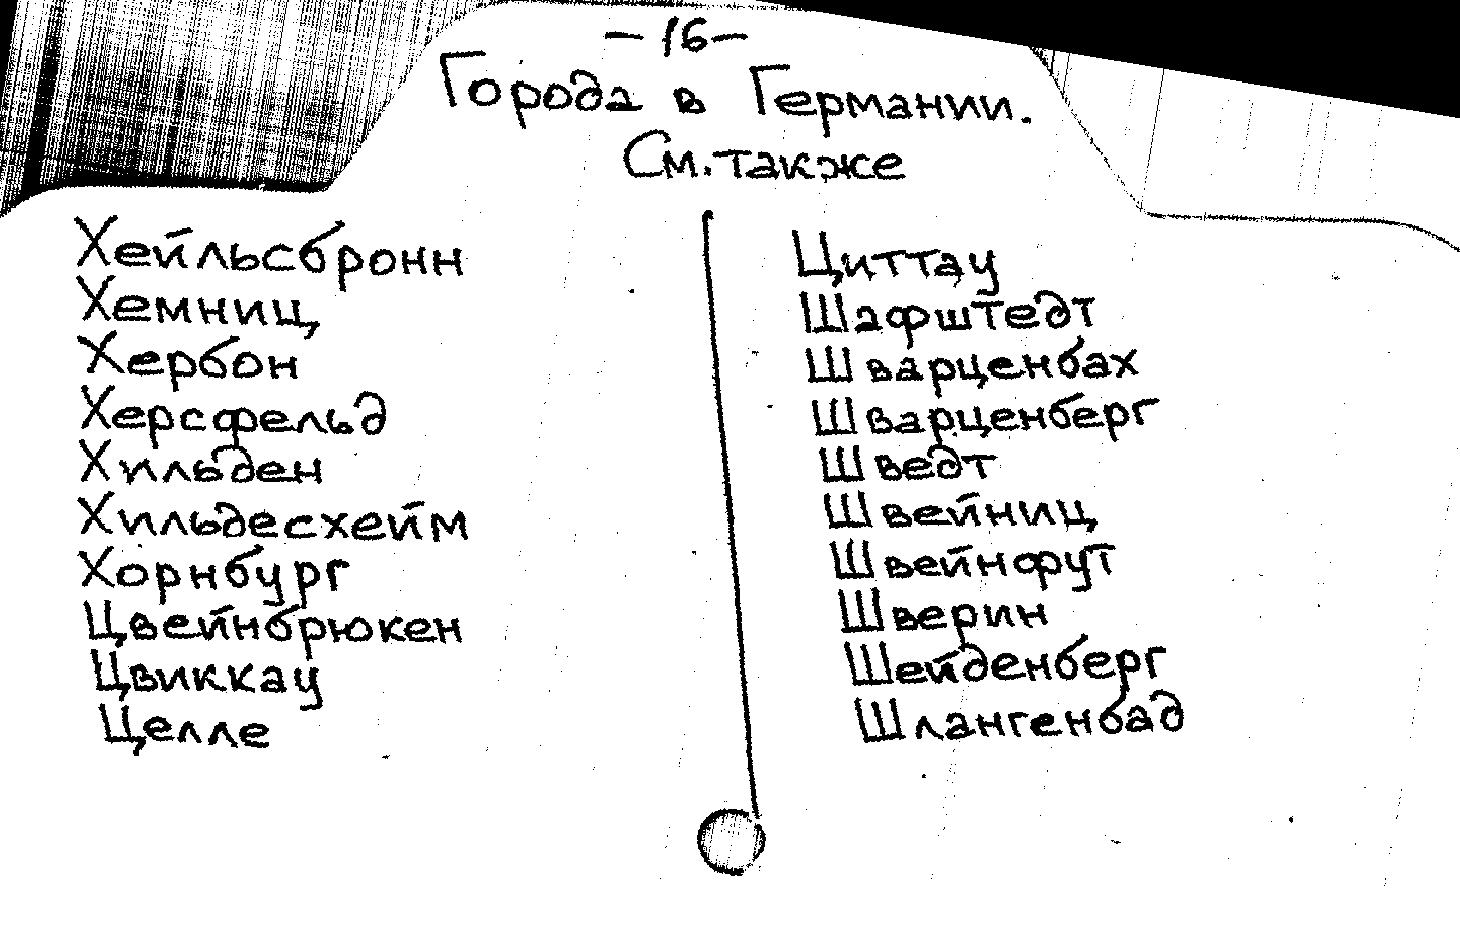 — 16 —
Города в Германии.
См. также
Хейльсбронн
Хемниц
Хербон
Херсфельд
Хильден
Хильдесхейм
Хорнбург
Цвейнбрюкен
Цвиккау
Целле
Циттау
Шафштедт
Шварценбах
Шварценберг
Шведт
Швейниц
Швейнфут
Шверин
Шейденберг
Шлангенбад